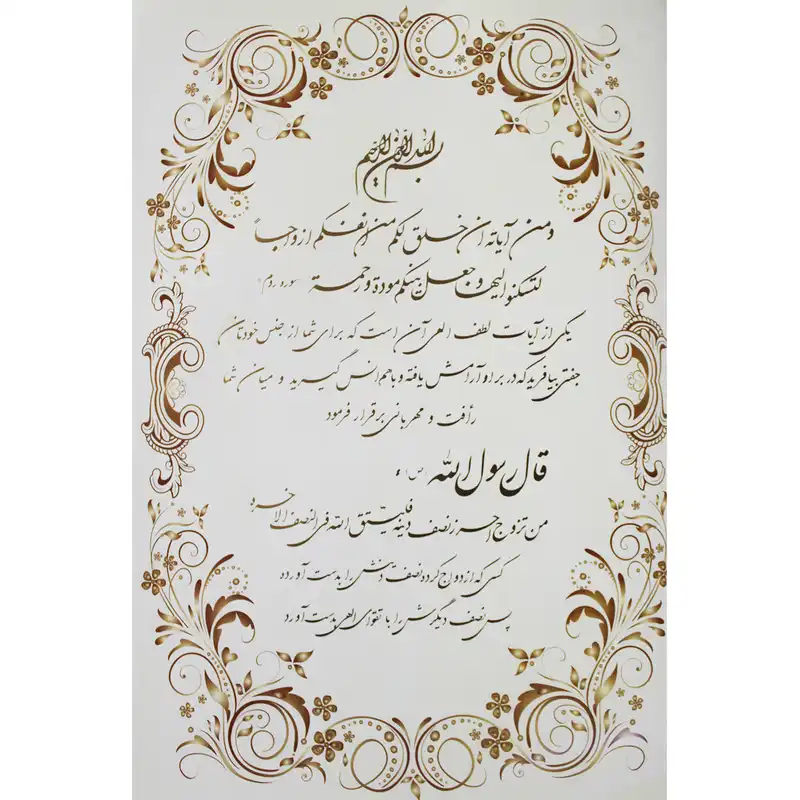 بسم الله الرحمن الرحیم
ومن آیاته ان خلق لکم من انفسکم ازواجاً
لتسکنوا الیها وجعل بینکم مودة ورحمة «سوره روم»
یکی از آیات لطف الهی آن است که برای شما از جنس خودتان
جفتی بیافرید که در بر او آرامش یافته و با هم انس گیرید و میان شما
رأفت و مهربانی برقرار فرمود
قال رسول الله (ص)
من تزوج احرز نصف دینه فلیتق الله فی النصف الاخر و
کسی که ازدواج کرده نصف دینش را بدست آورده
پس نصف دیگرش را با تقوای الهی بدست آورد